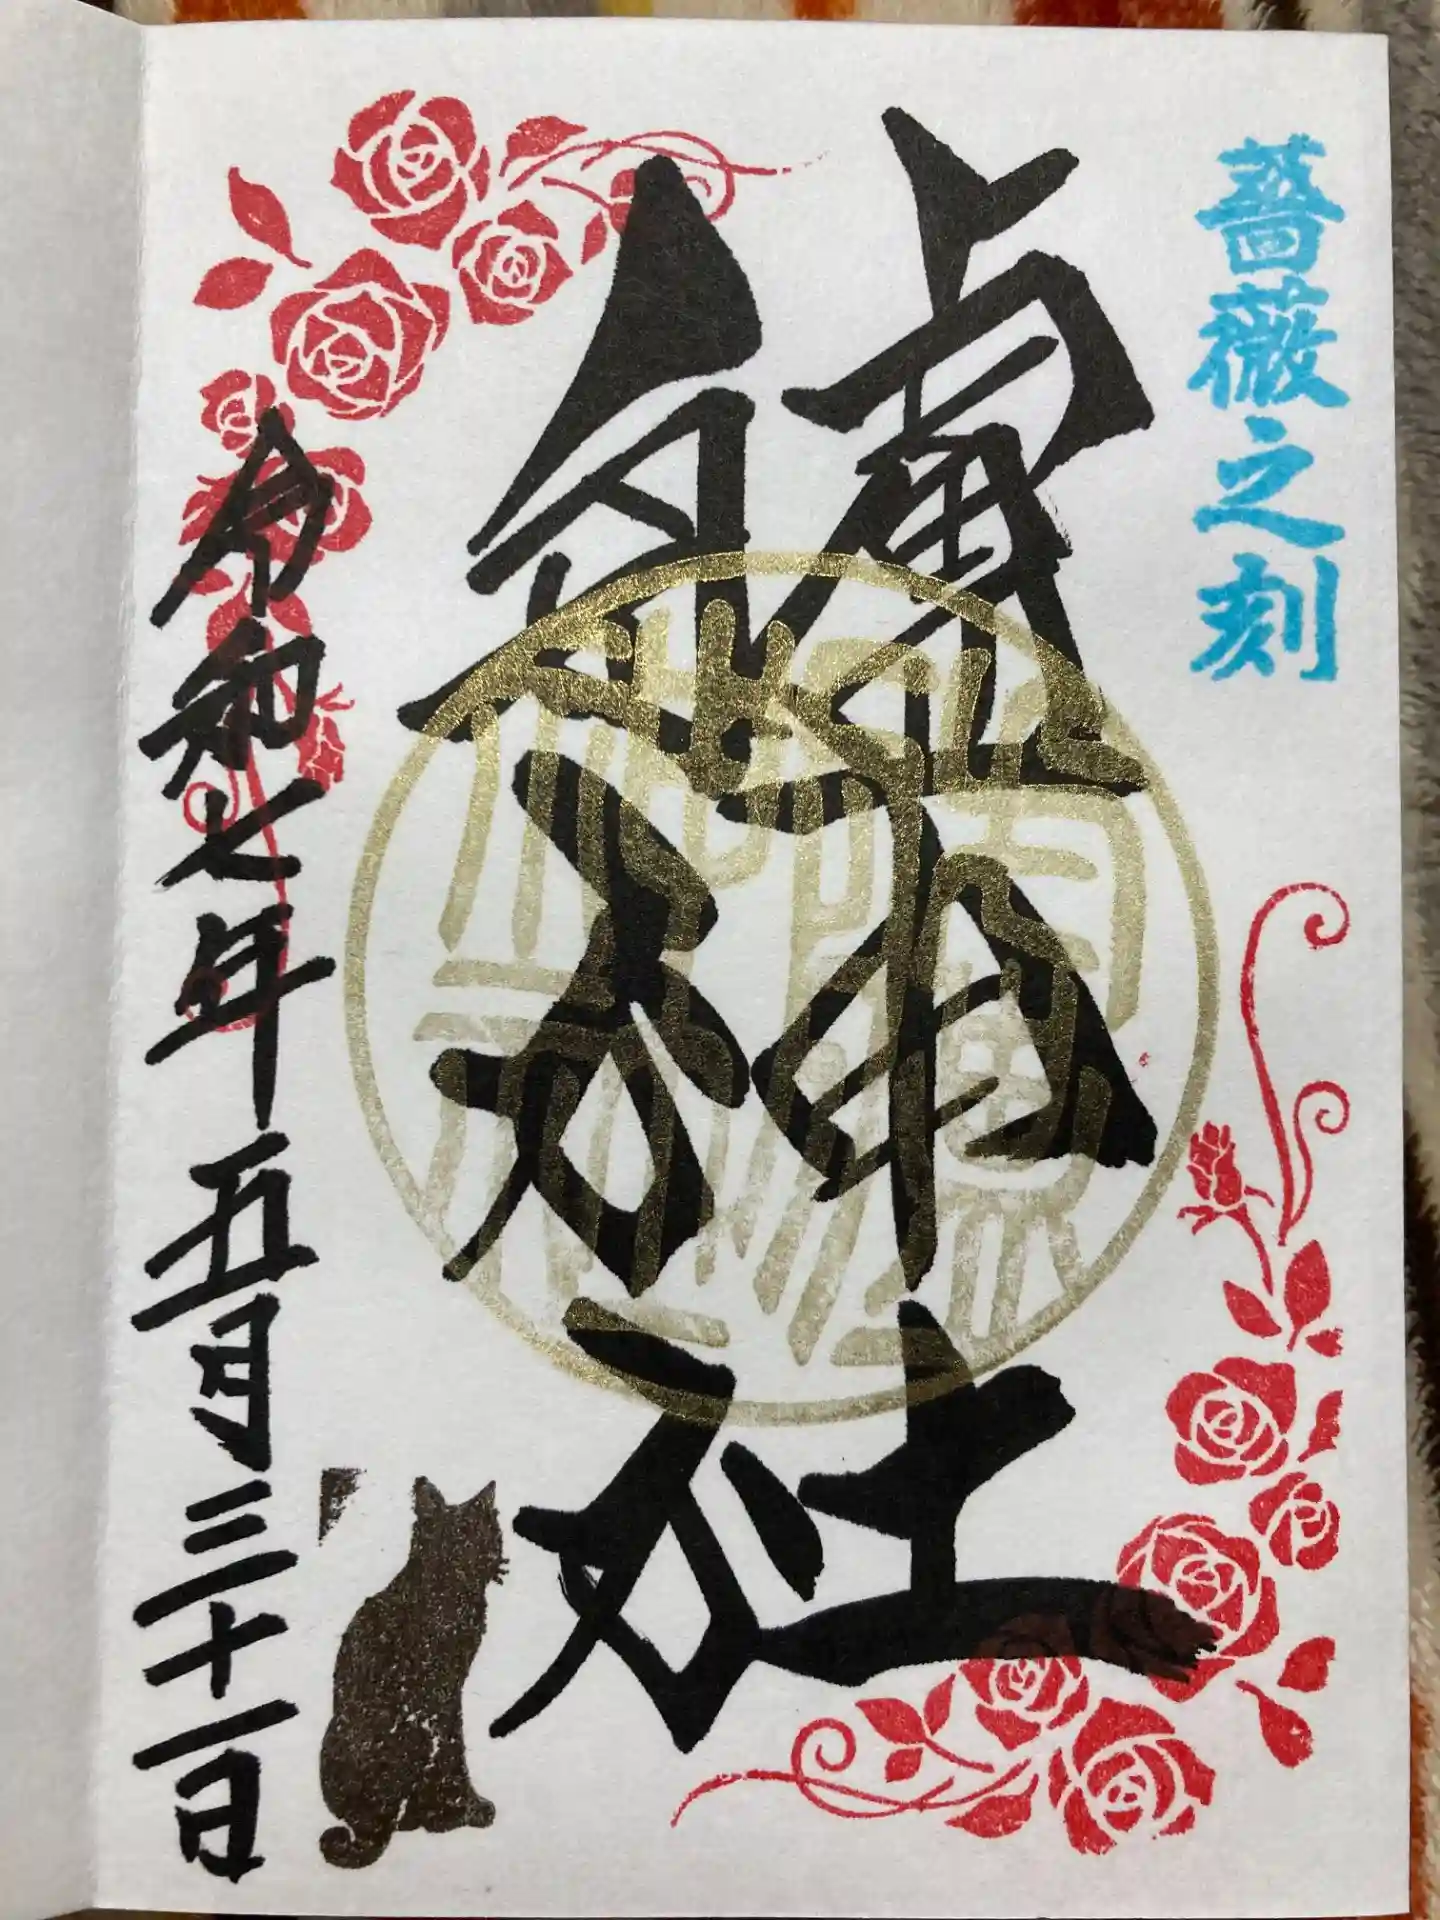 薔薇之刻
鎮神社
令和七年五月三十一日